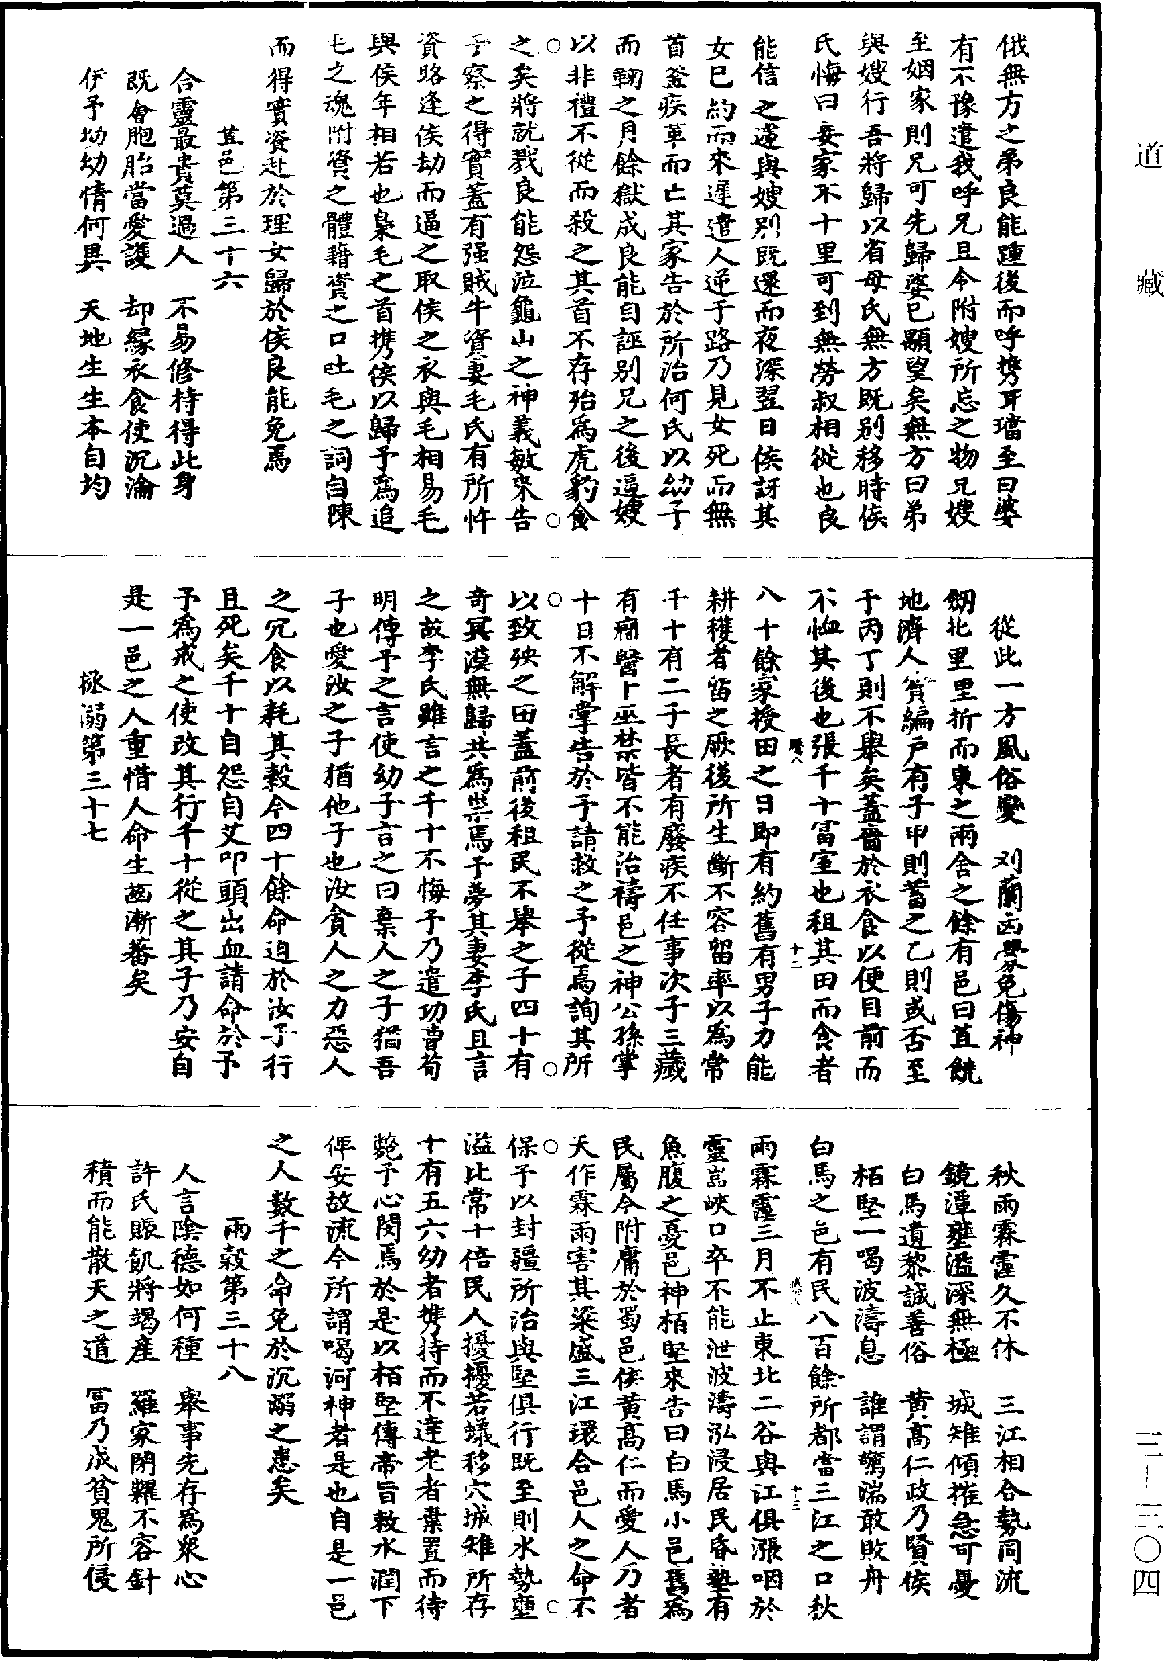 俄無方之弟良能踵後而呼携耳璫至曰婆
有不豫遣我呼兄且令附嫂所忘之物兄嫂
至姻家則兄可先歸婆已顒望矣無方曰弟
與嫂行吾將歸以省母氏無方既别移時侯
氏悔曰妾家不十里可到無勞叔相從也良
能信之遂與嫂别既還而夜深翌日侯訝其
女已約而來遲遣人逆于路乃見女死而無
首釜疾革而亡其家告於所治何氏以幼子
而鞫之月餘獄成良能自誣别兄之後逼嫂
以非禮不從而殺之其首不存殆為虎豹食
之矣將就戮良能怨泣龜山之神義敏來告
予察之得實蓋有强賊牛資妻毛氏有所忤
資路逢侯劫而逼之取侯之衣與毛相易毛
與侯年相若也梟毛之首携侯以歸予為追
毛之魂附資之體籍資之口吐毛之詞自陳
而得實資赴於理女歸於侯良能免焉
苴邑第三十六
合靈最貴莫過人　不易修持得此身
既會胞胎當愛護　却緣衣食使沉淪
伊予幼幼情何異　天地生生本自均
從此一方風俗變　刈蘭函釁免傷神
劒北里里折而東之兩舍之餘有邑曰苴銚
地濟人窮編戶有子甲則蓄之乙則或否至
于丙丁則不舉矣蓋嗇於衣食以便目前而
不恤其後也張千十富室也租其田而食者
八十餘家授田之日即有約舊有男子力能
耕穫者留之厥後所生斷不容留率以為常
千十有二子長者有廢疾不任事次子三藏
有痼醫卜巫禁皆不能治禱邑之神公孫掌
十日不解掌告於予請救之予從焉詢其所
以致殃之田蓋前後租民不舉之子四十有
奇冥漠無歸共為祟焉予夢其妻李氏且言
之故李氏雖言之千十不悔予乃遣功曹荀
明傳予之言使幼子言之曰棄人之子猶吾
子也愛汝之子猶他子也汝貪人之力惡人
之冗食以耗其穀今四十餘命迫於汝子行
且死矣千十自怨自艾叩頭出血請命於予
予為戒之使改其行千十從之其子乃安自
是一邑之人重惜人命生齒漸蕃矣
拯溺第三十七
秋雨霖霪久不休　三江相合勢同流
鏡潭壅溢深無極　城雉傾摧急可憂
白馬遺黎誠善俗　黄高仁政乃賢侯
栢堅一喝波濤息　誰謂驚湍敢敗舟
白馬之邑有民八百餘所都當三江之口秋
雨霖霪三月不止東北二谷與江俱漲咽於
靈嵓峽口卒不能泄波濤泓浸居民昏墊有
魚腹之憂邑神栢堅來告曰白馬小邑舊為
民屬今附庸於蜀邑侯黄高仁而愛人乃者
天作霖雨害其粢盛三江環合邑人之命不
保予以封疆所治與堅俱行既至則水勢壅
溢比常十倍民人擾擾若蟻移穴城雉所存
十有五六幼者携持而不達老者棄置而待
斃予心閔焉於是以栢堅傳帝旨敕水潤下
俾安故流今所謂喝河神者是也自是一邑
之人數千之命免於沉溺之患矣
雨穀第三十八
人言陰德如何種　舉事先存為衆心
許氏賑飢將竭產　羅家閉糶不容針
積而能散天之道　富乃成貧鬼所侵
道
藏
三—三〇四